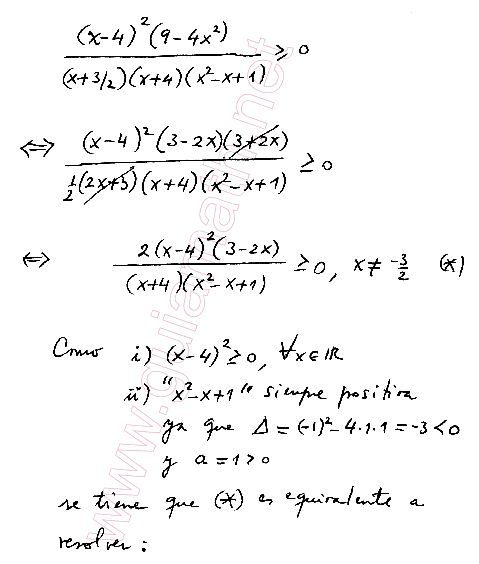 (x-4)²(9-4x²) / (x+3/2)(x+4)(x²-x+1) ≥ 0
⟺ (x-4)²(3-2x)(3+2x) / ½(2x+3)(x+4)(x²-x+1) ≥ 0
⟺ 2(x-4)²(3-2x) / (x+4)(x²-x+1) ≥ 0, x ≠ -3/2 (*)
Como i) (x-4)² ≥ 0, ∀x∈ℝ
ii) "x²-x+1" siempre positiva
ya que Δ = (-1)²-4.1.1 = -3 < 0
y a = 1 > 0
se tiene que (*) es equivalente a
resolver:
www.guiamath.net